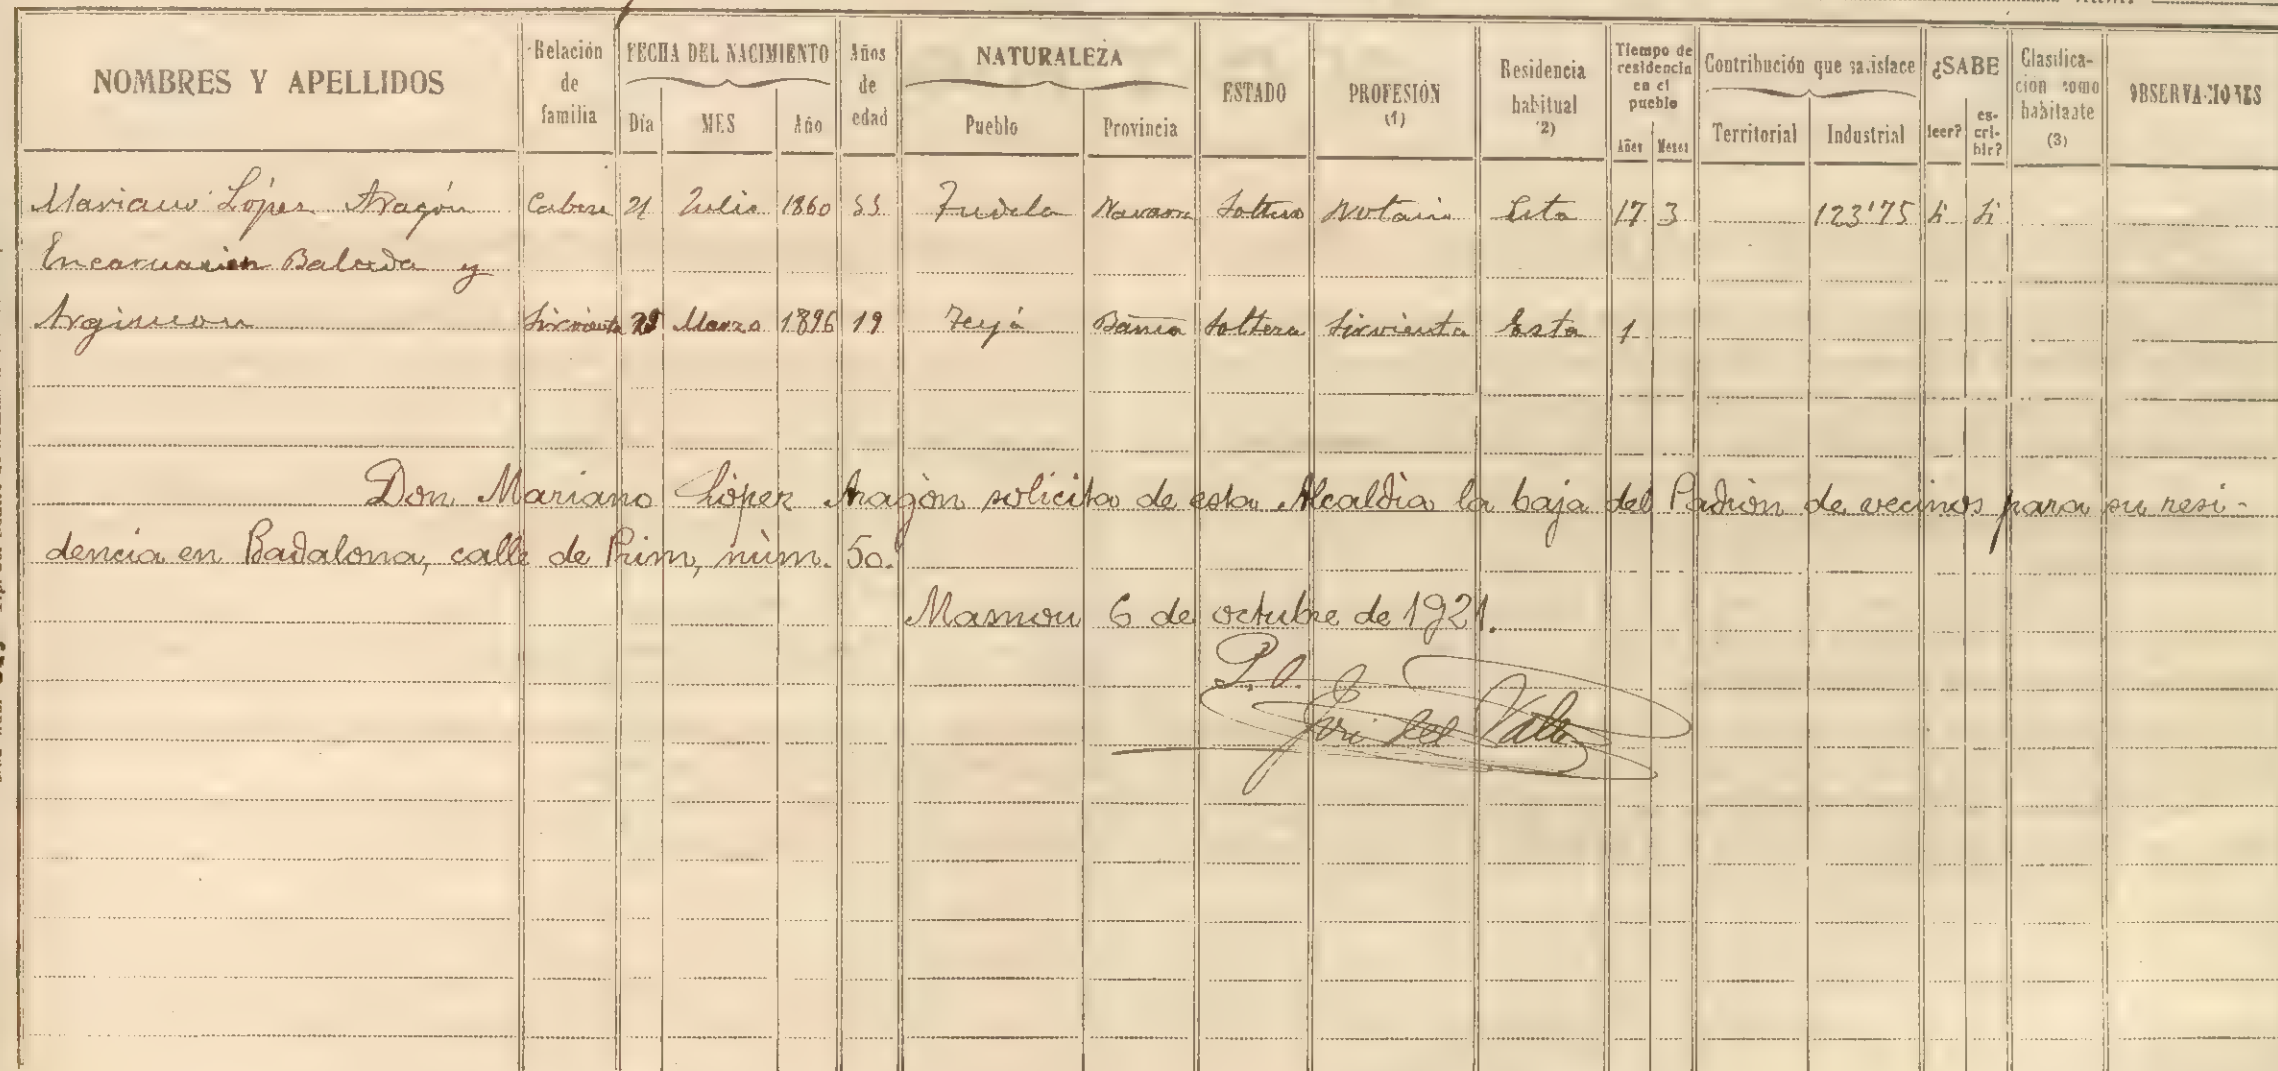 NOMBRES Y APELLIDOS | Relación de familia | FECHA DEL NACIMIENTO Día MES Año | Años de edad | NATURALEZA Pueblo Provincia | ESTADO | PROFESIÓN (1) | Residencia habitual (2) | Tiempo de residencia en el pueblo Años Meses | Contribución que satisface Territorial Industrial | ¿SABE leer? escribir? | Clasificación como habitante (3) | OBSERVACIONES
Mariano López Aragón Cabeza 21 Julio 1860 55 Tudela Navarra Soltero Notario Esta 17 3 123'75 Si Si
Encarnacion Balada y
Argimon Sirvienta Marzo 1896 19 Teyá Barna Soltera Sirvienta Esta 1
Don Mariano López Aragòn solicita de esta Alcaldìa la baja del Padròn de vecinos para su resi-
dencia en Badalona, calle de Prim, nùm. 50.
Masnou 6 de octubre de 1921.
P. O.
del Valle